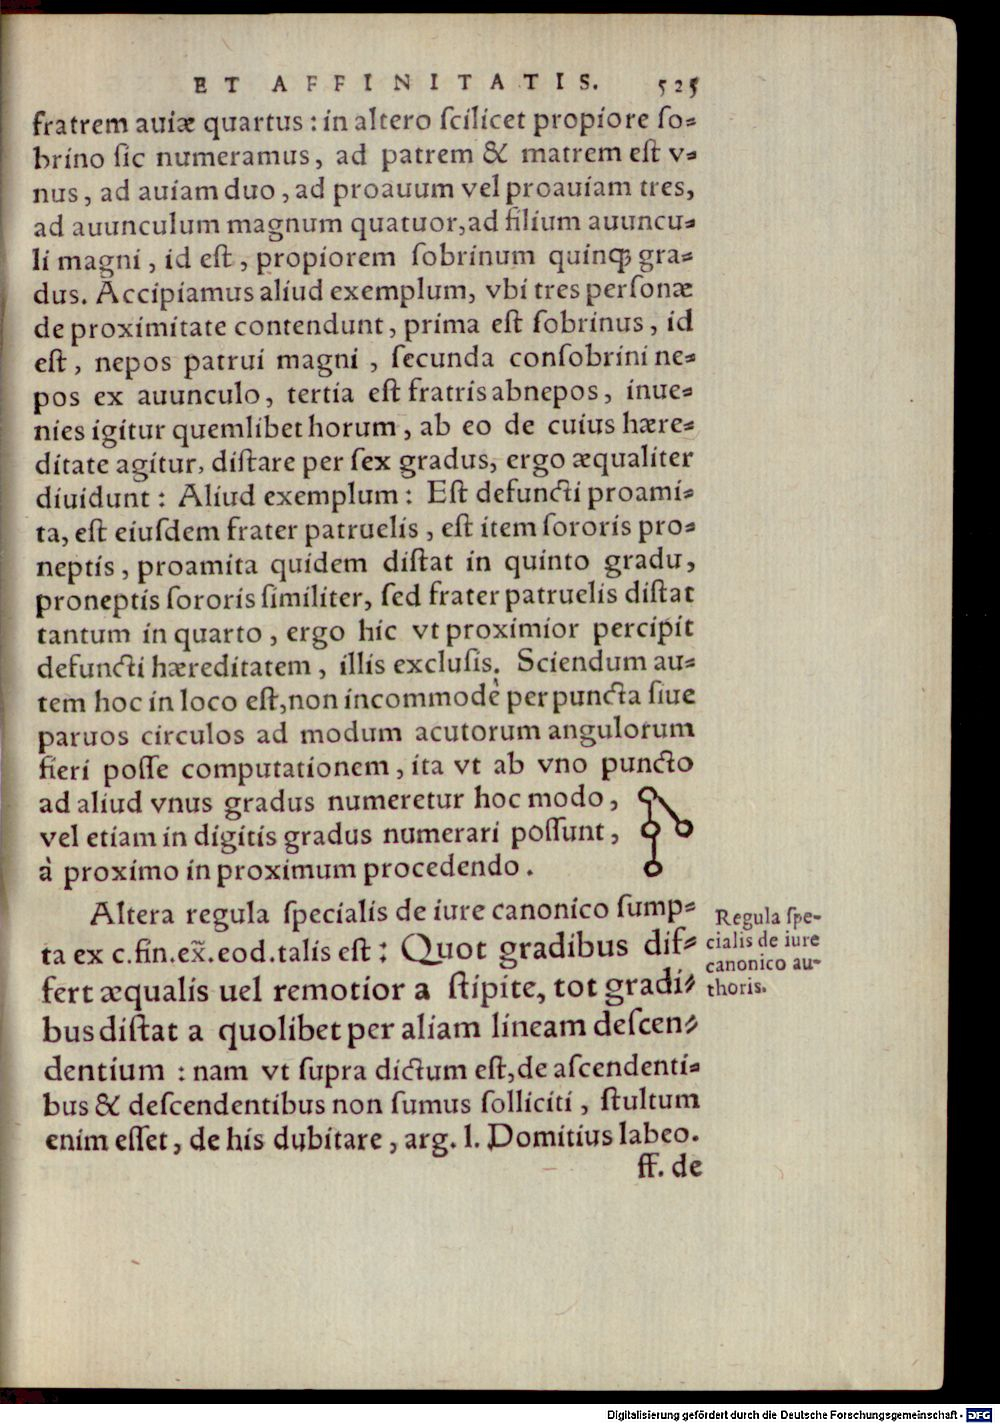 ET AFFINITATIS. 525
fratrem auiæ quartus : in altero ſcilicet propiore ſo-
brino ſic numeramus, ad patrem & matrem eſt v-
nus, ad auiam duo, ad proauum vel proauiam tres,
ad auunculum magnum quatuor, ad filium auuncu-
li magni, id eſt, propiorem ſobrinum quinq; gra-
dus. Accipiamus aliud exemplum, vbi tres perſonæ
de proximitate contendunt, prima eſt ſobrinus, id
eſt, nepos patrui magni, ſecunda conſobrini ne-
pos ex auunculo, tertia eſt fratris abnepos, inue-
nies igitur quemlibet horum, ab eo de cuius hære-
ditate agitur, diſtare per ſex gradus, ergo æqualiter
diuidunt : Aliud exemplum : Eſt defuncti proami-
ta, eſt eiuſdem frater patruelis, eſt item ſororis pro-
neptis, proamita quidem diſtat in quinto gradu,
proneptis ſororis ſimiliter, ſed frater patruelis diſtat
tantum in quarto, ergo hic vt proximior percipit
defuncti hæreditatem, illis excluſis. Sciendum au-
tem hoc in loco eſt, non incommodè per puncta ſiue
paruos circulos ad modum acutorum angulorum
fieri poſſe computationem, ita vt ab vno puncto
ad aliud vnus gradus numeretur hoc modo,
vel etiam in digitis gradus numerari poſſunt,
à proximo in proximum procedendo.
Altera regula ſpecialis de iure canonico ſump-
ta ex c. fin. ex̃. eod. talis eſt : Quot gradibus dif-
fert æqualis uel remotior a ſtipite, tot gradi-
bus diſtat a quolibet per aliam lineam deſcen-
dentium : nam vt ſupra dictum eſt, de aſcendenti-
bus & deſcendentibus non ſumus ſolliciti, ſtultum
enim eſſet, de his dubitare, arg. l. Domitius labeo.
ff. de
Regula ſpe-
cialis de iure
canonico au-
thoris.
Digitalisierung gefördert durch die Deutsche Forschungsgemeinschaft - DFG